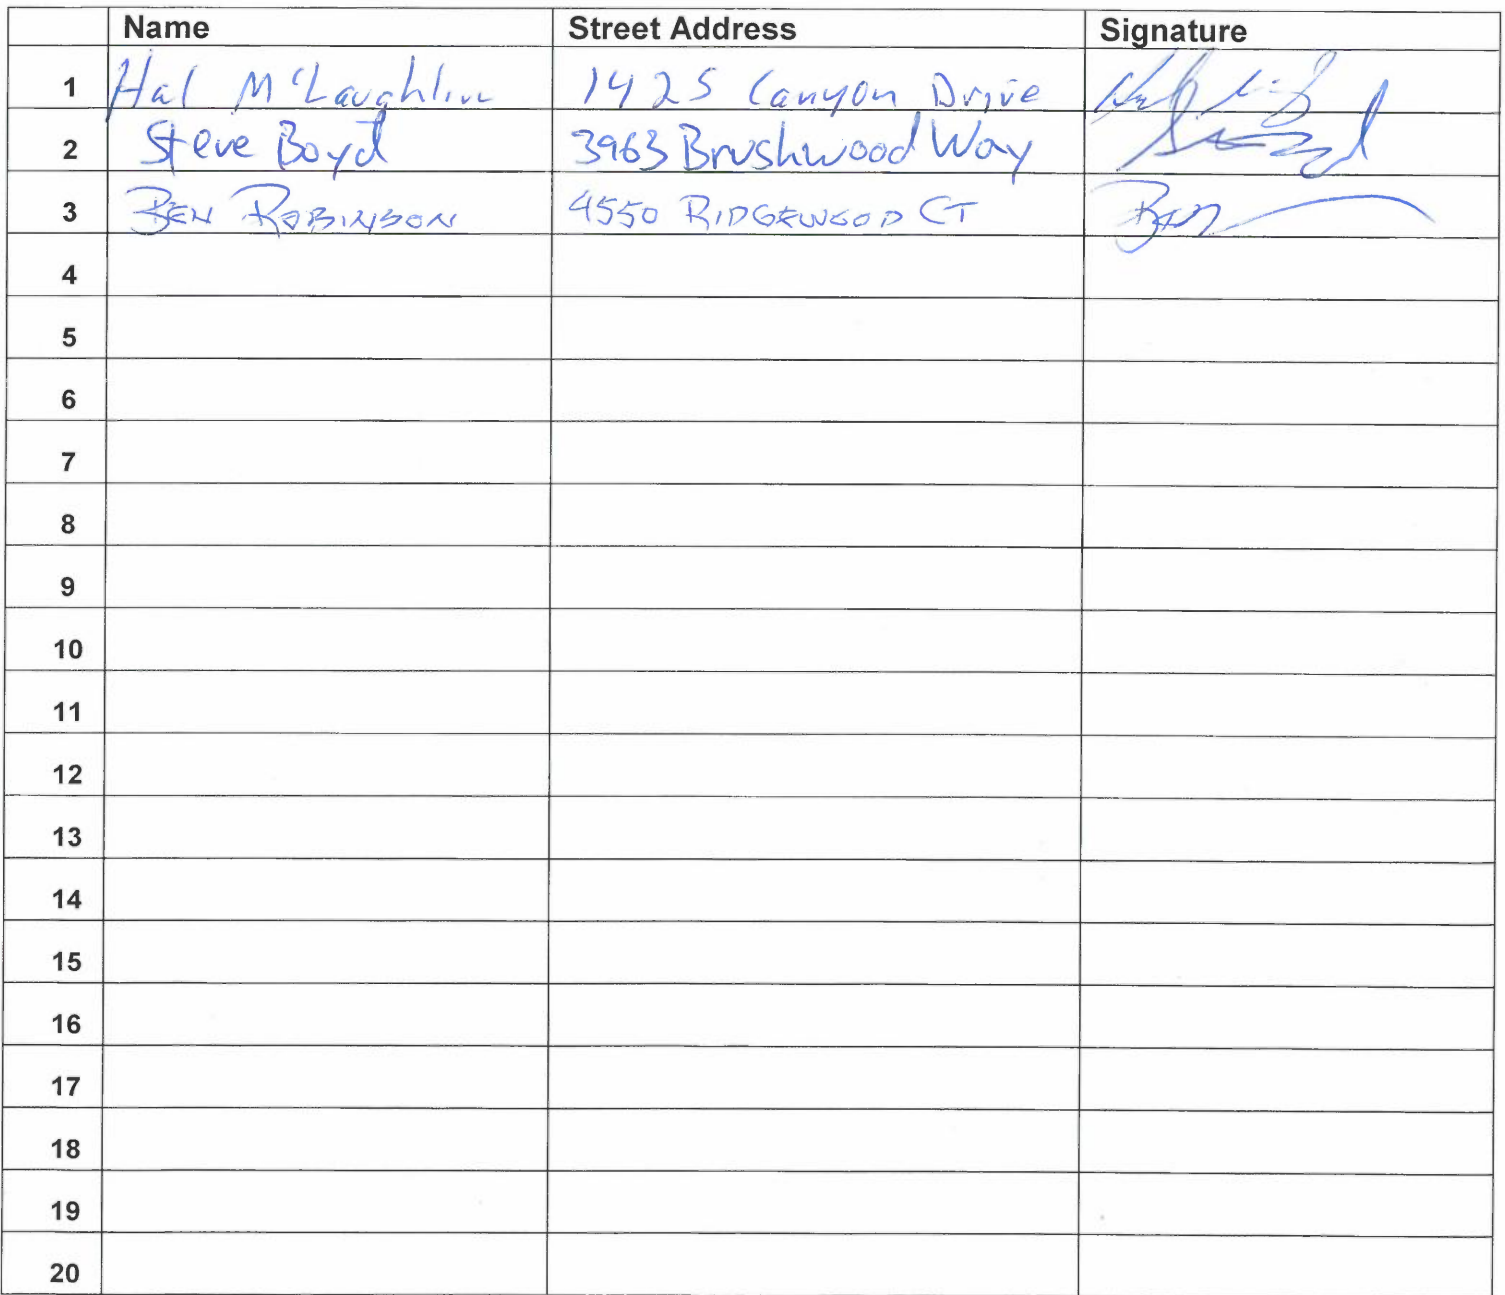 Name Street Address Signature
1 Hal McLaughlin 1425 Canyon Drive
2 Steve Boyd 3963 Brushwood Way
3 BEN ROBINSON 4550 RIDGEWOOD CT
4
5
6
7
8
9
10
11
12
13
14
15
16
17
18
19
20